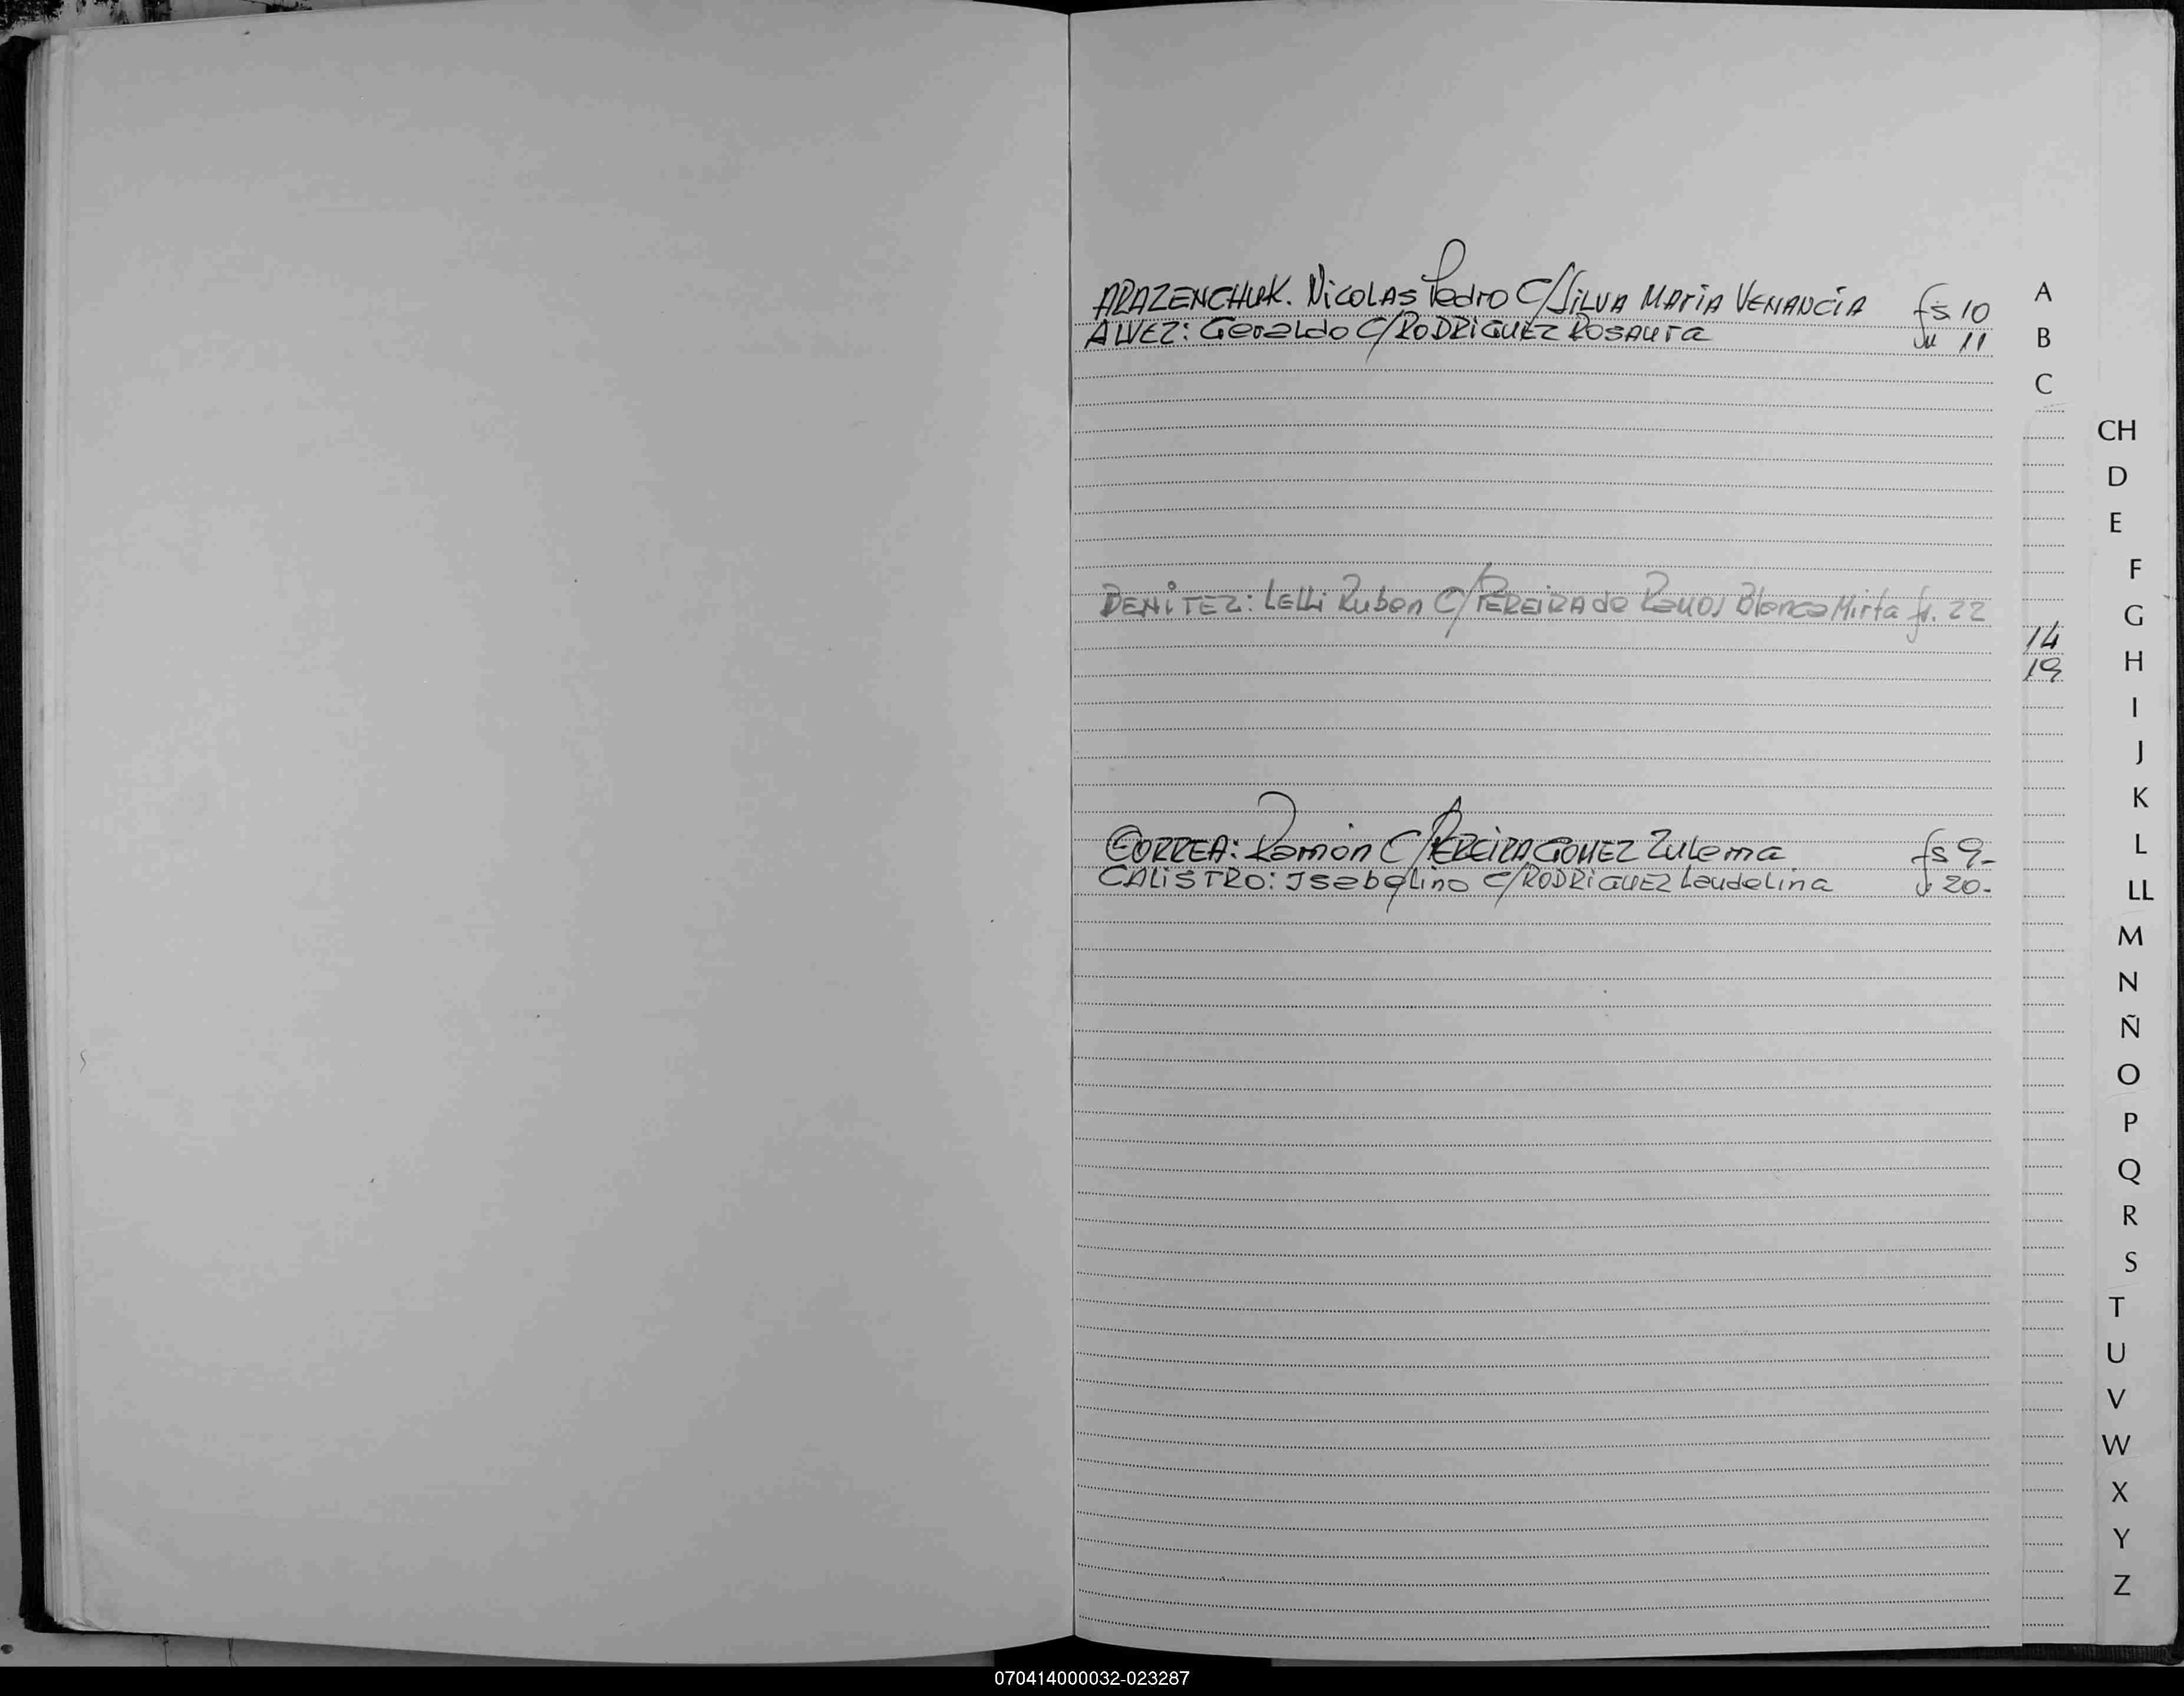 ARAZENCHUK. Nicolas Pedro C/SILVA MARIA VENANCIA fs 10
ALVEZ: Geraldo C/RODRIGUEZ ROSAURA fs 11
BENITEZ: Lelli Ruben C/PEREIRA de Ramos Blanca Mirta fs. 22
CORREA: Ramón C/PEREIRA GOMEZ Zulema fs 9-
CALISTRO: Isabelino C/RODRIGUEZ Laudelina fs 20-
14
19
A
B
C
CH
D
E
F
G
H
I
J
K
L
LL
M
N
Ñ
O
P
Q
R
S
T
U
V
W
X
Y
Z
070414000032-023287